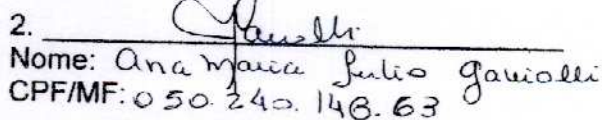 2.
Nome: Ana Maria Julio Gaviolli
CPF/MF: 050.240.148.63